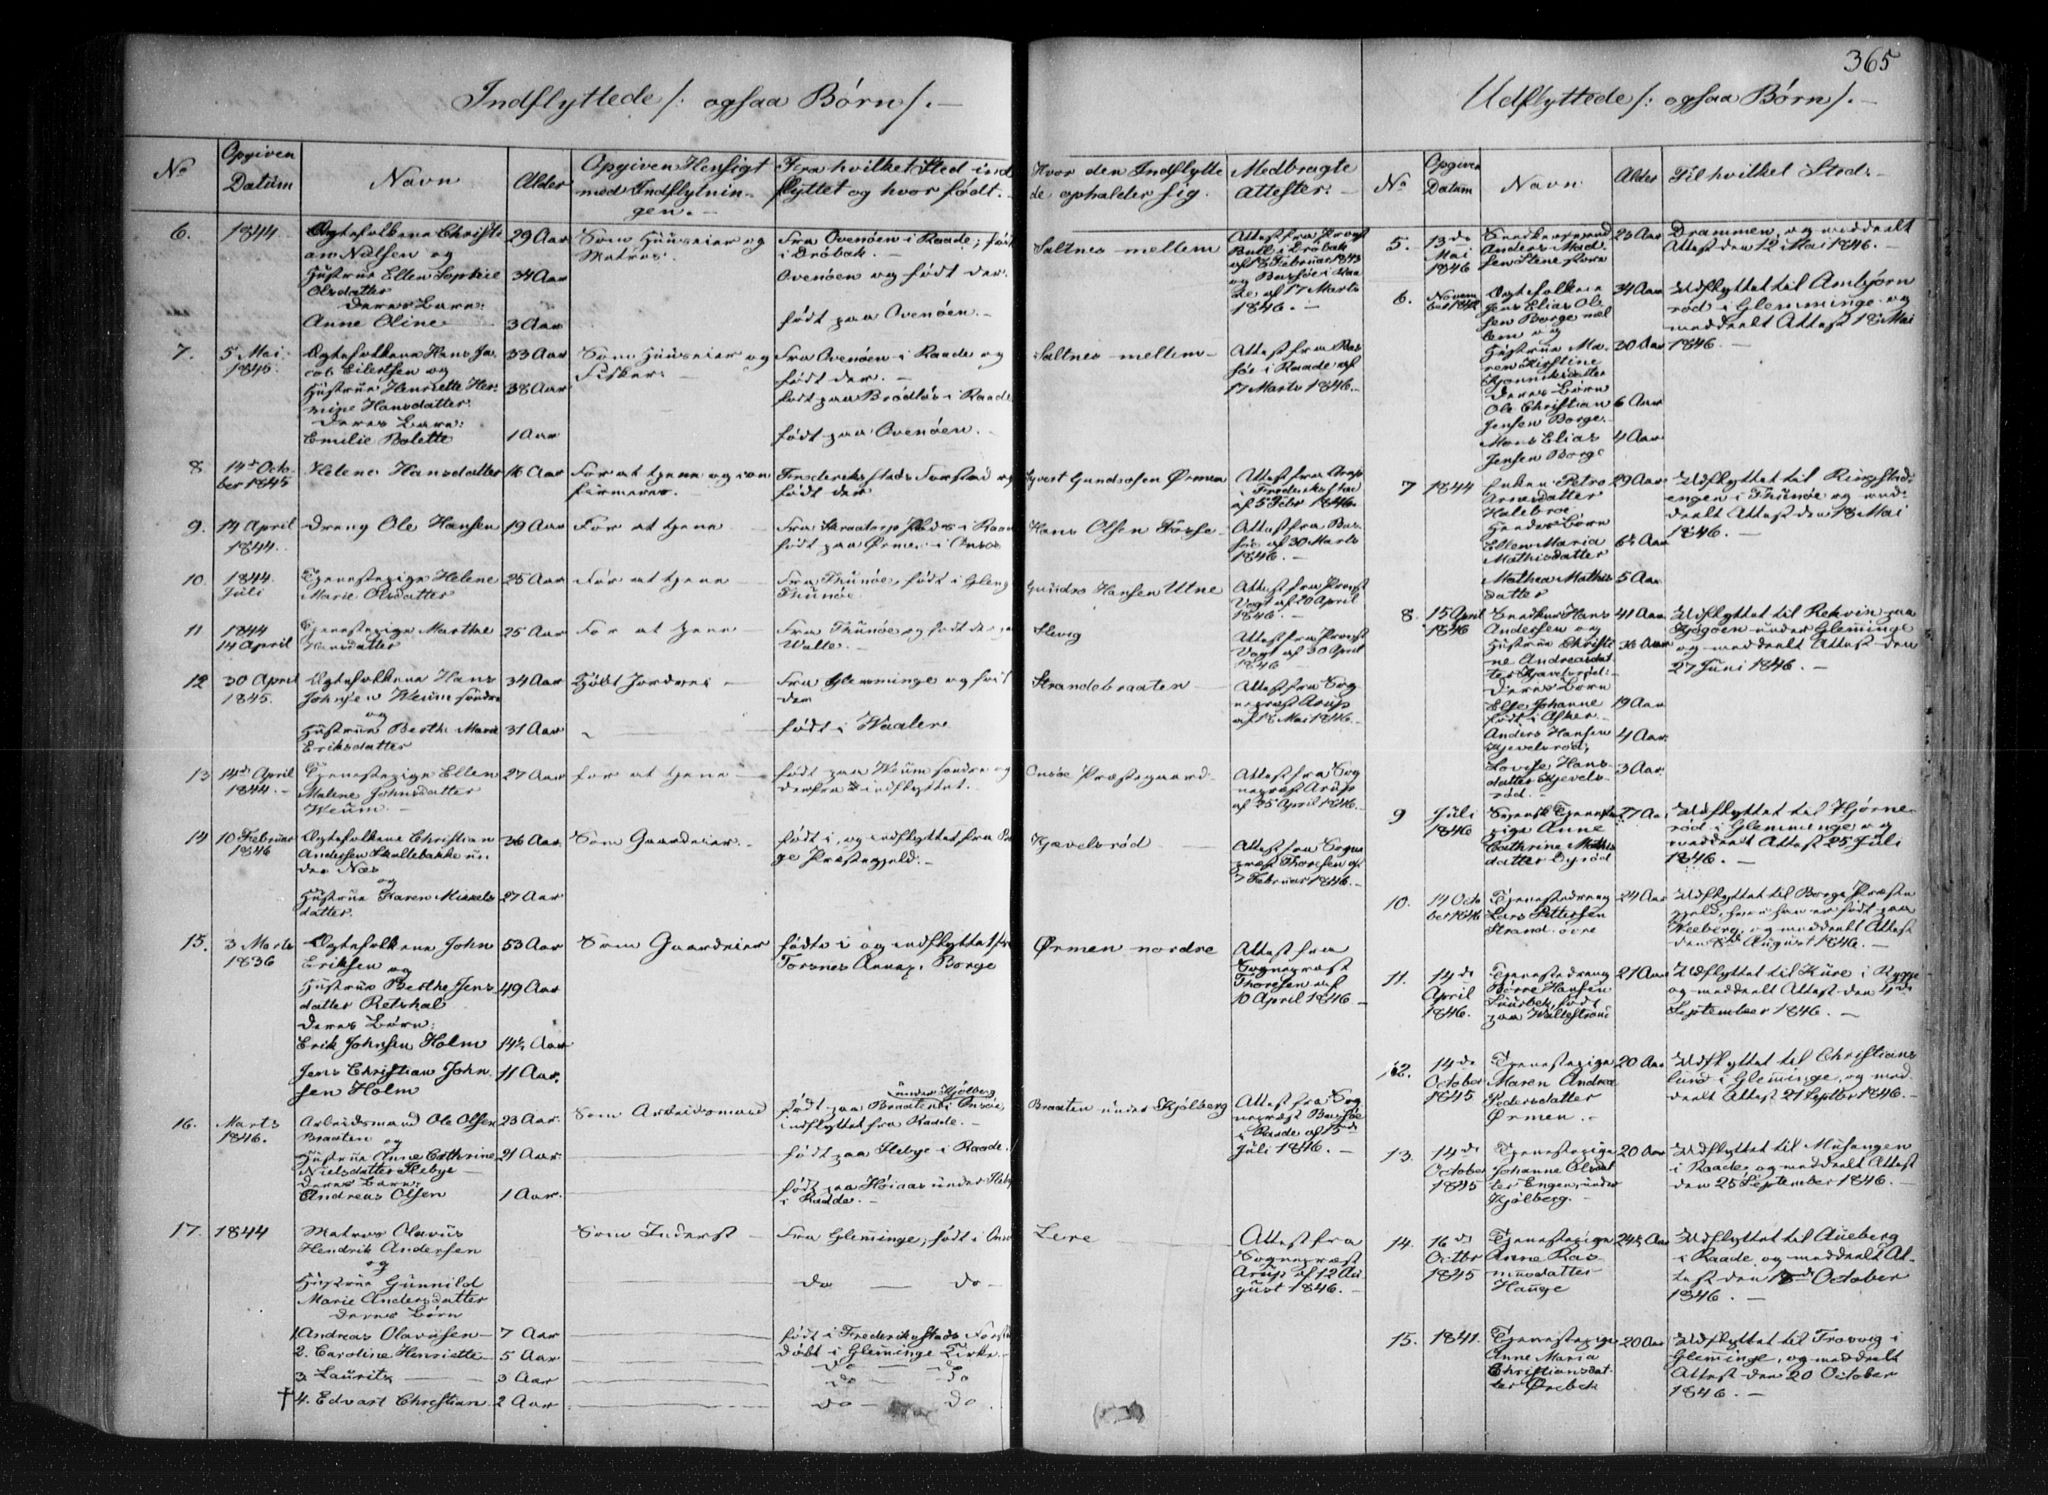 365
Indflyttede /: ogsaa Børn /. —
No
Opgiven Datum
Navn
Alder
Opgiven Hensigt
med Indflytnin-
gen. —
Fra hvilket Sted ind
flyttet og hvor født. —
Hvor den Indflytte
de opholder sig.
Medbragte
Attester. —
6.
1844.
Ægtefolkene Christi
an Nilsen og
Hustrue Ellen Sophie
Olsdatter
deres Barn:
Anne Oline
29 Aar
34 Aar
3 Aar
Som Huuseier og
Matros.
Fra Ovenöen i Raade, født
i Dröbak.
Ovenöen og født der.
født paa Ovenöen. —
Saltnes mellem
Attest fra Provst
Bull i Dröbak
17 Marts
1846. —
7.
5 Mai
1845.
Ægtefolkene Hans Ja-
cob Eilertsen og
Hustrue Henriette Her-
mine Hansdatter
deres Barn:
Emilie Bolette
33 Aar
38 Aar
1 Aar
Som Huuseier og
Fisker. —
Fra Ovenöen i Raade og
født der. —
født paa Ovenöen. —
Saltnes mellem —
Attest fra Bas-
söe i Raade af
17 Marts 1846. —
8.
14de Octo-
ber 1845
Helene Hansdatter
16 Aar
For at tjene og con
firmeres. —
Frederiksstads Forstad og
født der
Attest fra Arup
i Frederiksstad
af 5 Febr 1846.
9.
14 April
1844.
Dreng Ole Hansen
19 Aar
For at tjene
født paa Ørmen i Onsöe
Hans Olsen
Attest fra Bas-
söe af 30 Marts
1846. —
10.
1844
Juli
Tjenestepige Helene
Marie Olsdatter
25 Aar
For at tjene
Fra Thunöe, født i
Thunöe
Gundro Hansen Utne
Attest fra Provst
Vogt af 20 April
1846. —
11
1844
14 April
Tjenestepige Marthe
Hansdatter
25 Aar
For at tjene
Fra Thunöe og født der
Slevig
Attest fra Provst
Vogt af 30 April
1846 —
12
30 April
1845.
Ægtefolkene Hans
Johnsen Weum söndre
og
Hustrue Berthe Marie
Eriksdatter
34 Aar
31 Aar
Kjöbt Jordvei —
Fra Glemminge og født
der
født i Waalere
Strandebraaten —
Attest fra Sog
nepræst Arup
Mai 1846. —
13
14de April
1844. —
Tjenestepige Ellen
Malene Johnsdatter
Weum —
27 Aar
for at tjene —
født paa Weum söndre og
derfra indflyttet.
Onsöe Præstegaard.
Attest fra Sog
nepræst Arup
af 25 April 1846.
14
10 Februar
1846
Ægtefolkene Christian
Andersen Skallebakke un-
der Næs
og
Hustrue Karen Mikkels
datter.
36 Aar
27 Aar
Som Gaardeier. —
født i, og indflyttet fra Bor
ge Præstegjeld. —
Kjævelsröd —
Attest fra Sogne
præst Thoresen af
7 Februar 1846. —
15.
3 Marts
1836
Ægtefolkene John
Eriksen
og
Hustrue Berthe Jens
datter Retvhal
deres Børn:
Erik Johnsen Holm
Jens Christian John
sen Holm
53 Aar
49 Aar
14½ Aar
11 Aar.
Som Gaardeier
fødte i og indflyttet fra
Torsnes Annex i Borge
Ørmen nordre
Attest fra
Sognepræst
Thoresen af
10 April 1846 —
16.
Marts
1846.
Arbeidsmand Ole Olsen
Braaten
og
Hustrue Anne Cathrine
Nielsdatter Hebye —
deres Barn:
Andreas Olsen
23 Aar.
21 Aar.
1 Aar.
Som Arbeidsmand
under Kjölberg
født paa Braaten i Onsöe,
indflyttet fra Raade. —
født paa Hebye i Raade.
født paa Höiaas under Heb
i Raade. —
Braaten under Kjölberg
Attest fra Sog
nepræst Bassöe
i Raade af 15de
Juli 1846. —
17.
1844
Matros Olavus
Hendrik Andersen
og
Hustrue Gunnild
Marie Andersdatter
deres Børn
1. Andreas Olavusen —
2. Caroline Henriette
3 Lauritz —
† 4. Edvart Christian
7 Aar
5 Aar
3 Aar
2 Aar
Som Inderst —
Fra Glemminge, født i Ons
do — do —
født i Frederiksstads Forst
döbt i Glemminge Kirke.
do — do
do — do
do — do.
Lere —
Attest fra
Sognepræst
Arup af 12 Au
gust 1846. —
Udflyttede /: ogsaa Børn /. —
No
Opgiven Datum
Navn
Alder
Til hvilket Sted. —
5.
13de
Mai
1846
Anders Mad
sen Stene store
23 Aar
Drammen, og meddeelt
Attest den 12 Mai 1846. —
6.
Novem
ber
Ægtefolkene
Jens Elias Ole
sen Borge mel
lem og
Hustrue Ma-
ren Kistine
deres Børn
Ole Christian
Jensen Borge.
Mons Elias
Jensen Borge
34 Aar
30 Aar
6 Aar
4 Aar
Udflyttet til Ambjörn
röd i Glemminge og
meddeelt Attest 18 Mai
1846. —
7
1844
Enken Petro
Arnesdatter
Halebroe
Hendes Børn
Ellen Maria
Mathisdatter
Mathea Mathis
datter
29 Aar
6½ Aar
5 Aar
Udflyttet til Ringstad-
engen i Thunöe og med-
deelt Attest den 18 Mai
1846. —
8.
15 April
1846
Snedker Hans
Andersen og
Hustrue Christi
ne Andreasdat
ter
deres Børn
Else Johanne
født i Asker. —
Anders Hansen
Kjevelsröd;
Lovise Hans
datter Kjevels-
röd. —
41 Aar
36 Aar
19 Aar
4 Aar.
3 Aar.
Udflyttet til Rekvin paa
Kjøgöen under Glemminge
og meddeelt Attest den
27 Juni 1846. —
9
Juli
1846
Svensk Tjeneste
pige Anne
Cathrine Mathis
datter Dyröd
27 Aar
Udflyttet til Hjörne-
röd i Glemminge og
meddeelt Attest 25 Juli
1846. —
10.
14 Octo
ber 1846
Tjenestedreng
Lars Pettersen
Strand övre
24 Aar
Udflyttet til Borge Præste
gjeld, hvor han er født paa
Weeberg, og meddeelt Attest
den 8de August 1846. —
11.
14de
April
1846.
Tjenestedreng
Börre Hansen
født
paa Wallestrand
21 Aar
Udflyttet til Kure i Rygge
og meddeelt Attest den 4de
September 1846. —
12.
14de
October
1845
Tjenestepige
Maren Andrea
Pedersdatter
Ørmen. —
20 Aar
Udflyttet til Christians
lund i Glemminge, og med
deelt Attest 21 Septber 1846. —
13.
14de
October
1845
Tjenestepige
Johanne Olsdat
ter Engen, under
Kjölberg. —
20 Aar
Udflyttet til Musangen
i Raade, og meddeelt Attest
den 25 September 1846. —
14.
16de
Octbr
1845
Tjenestepige
Anne Ras
musdatter
Hauge
24½ Aar
Udflyttet til Aueberg
i Raade, og meddeelt At-
test den 18de October
1846. —
15.
1841.
Tjenestepige
Anne Maria
Christiansdat
ter Örebek
20 Aar
Udflyttet til Trosvig i
Glemminge, og meddeelt
Attest den 20 October
1846. —